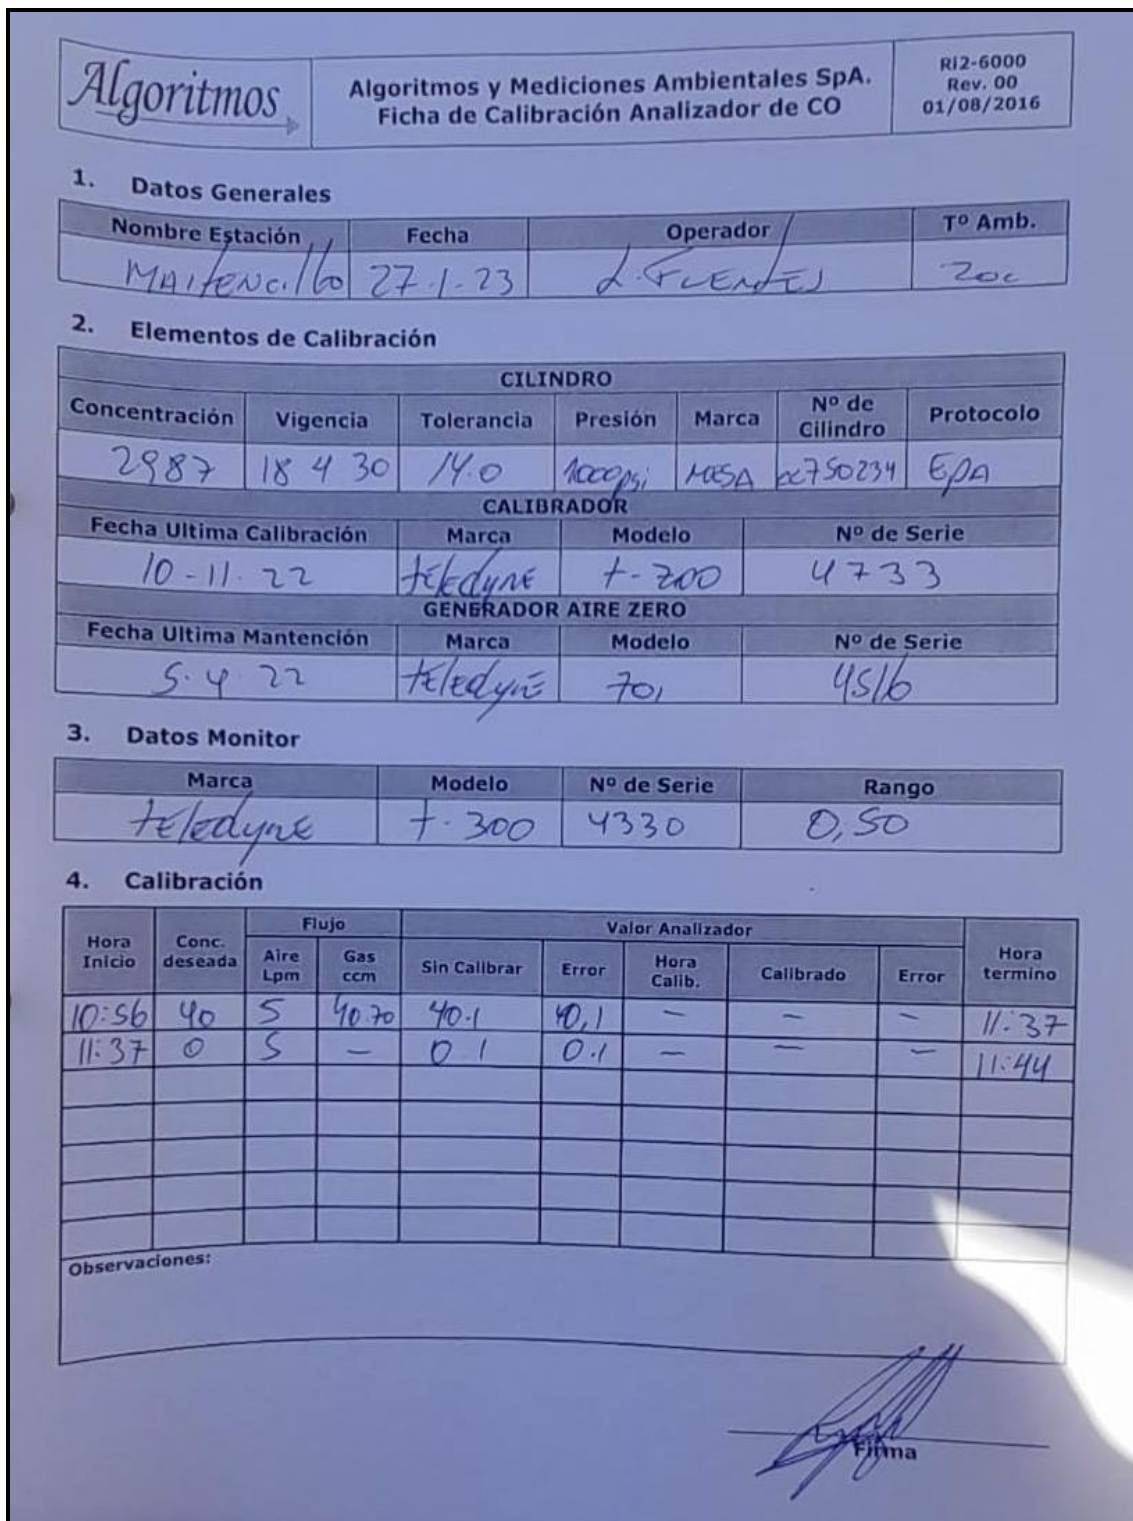 Algoritmos
Algoritmos y Mediciones Ambientales SpA.
Ficha de Calibración Analizador de CO
RI2-6000
Rev. 00
01/08/2016
1. Datos Generales
Nombre Estación Fecha Operador Tº Amb.
MAITENCillo 27.1.23 L. FUENTES 20c
2. Elementos de Calibración
CILINDRO
Concentración Vigencia Tolerancia Presión Marca Nº de Cilindro Protocolo
2987 18 4 30 14.0 1000psi cc750234 EPA
CALIBRADOR
Fecha Ultima Calibración Marca Modelo Nº de Serie
10-11.22 teledyne t-700 4733
GENERADOR AIRE ZERO
Fecha Ultima Mantención Marca Modelo Nº de Serie
5.4.22 teledyne 701 4516
3. Datos Monitor
Marca Modelo Nº de Serie Rango
teledyne t.300 4330 0,50
4. Calibración
Hora Inicio Conc. deseada Flujo Valor Analizador Hora termino
Aire Lpm Gas ccm Sin Calibrar Error Hora Calib. Calibrado Error
10:56 40 5 40.70 40.1 - - - 11:37
11:37 0 5 - 0.1 0.1 - - - 11:44
Observaciones:
Firma